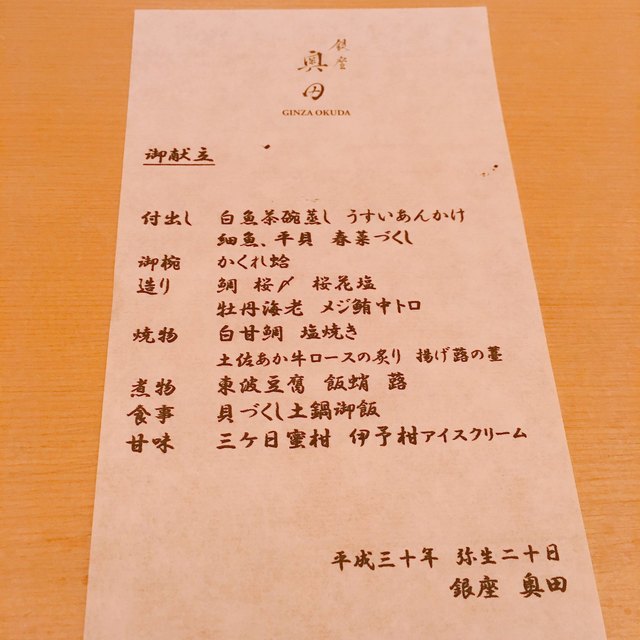 銀座
奥田
GINZA OKUDA
御献立
付出し 白魚茶碗蒸し うすいあんかけ
細魚、平貝 春菜づくし
御椀 かくれ蛤
造り 鯛 桜〆 桜花塩
牡丹海老 メジ鮪中トロ
焼物 白甘鯛 塩焼き
土佐あか牛ロースの炙り 揚げ蕗の薹
煮物 東波豆腐 飯蛸 蕗
食事 貝づくし土鍋御飯
甘味 三ケ日蜜柑 伊予柑アイスクリーム
平成三十年 弥生二十日
銀座 奥田